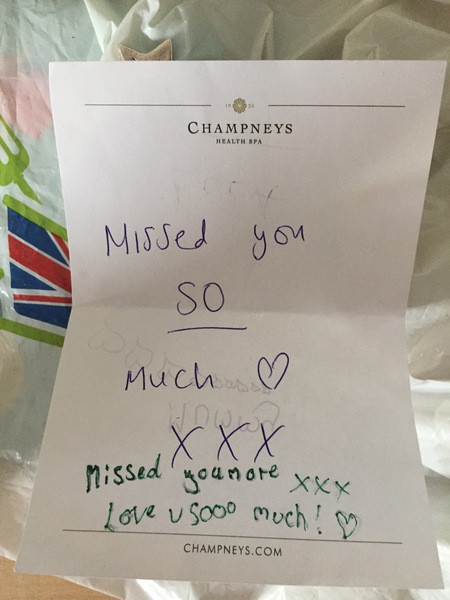 1926
CHAMPNEYS
HEALTH SPA
Missed you
SO
Much ♡
XXX
Missed youmore xxx
Love u sooo much! ♡
CHAMPNEYS.COM